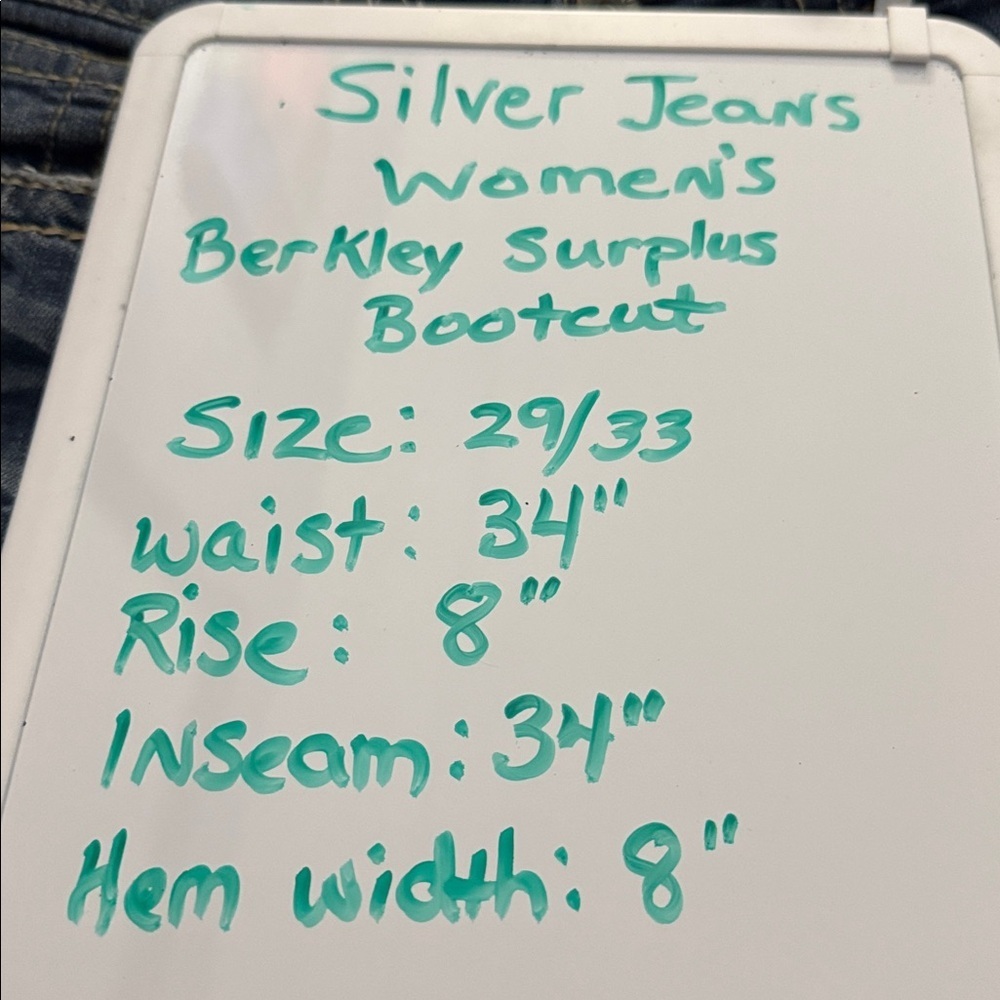 Silver Jeans
Women's
Berkley Surplus
Bootcut
Size: 29/33
waist: 34"
Rise: 8"
Inseam: 34"
Hem width: 8"